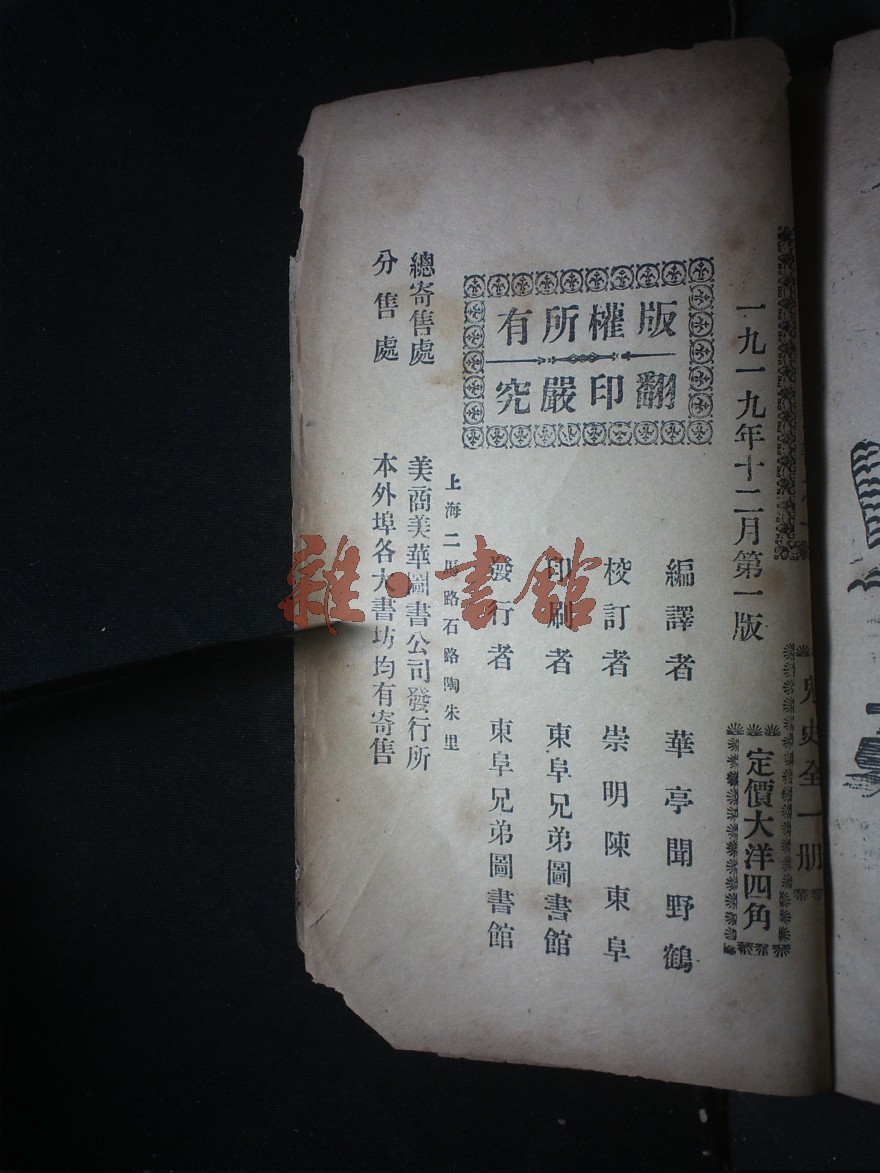 鬼史全一册
定價大洋四角
一九一九年十二月第一版
版權所有
翻印嚴究
編譯者 華亭聞野鶴
校訂者 崇明陳東阜
印刷者 東阜兄弟圖書館
發行者 東阜兄弟圖書館
上海二馬路石路陶朱里
總寄售處 美商美華圖書公司發行所
分售處 本外埠各大書坊均有寄售
雜·書館